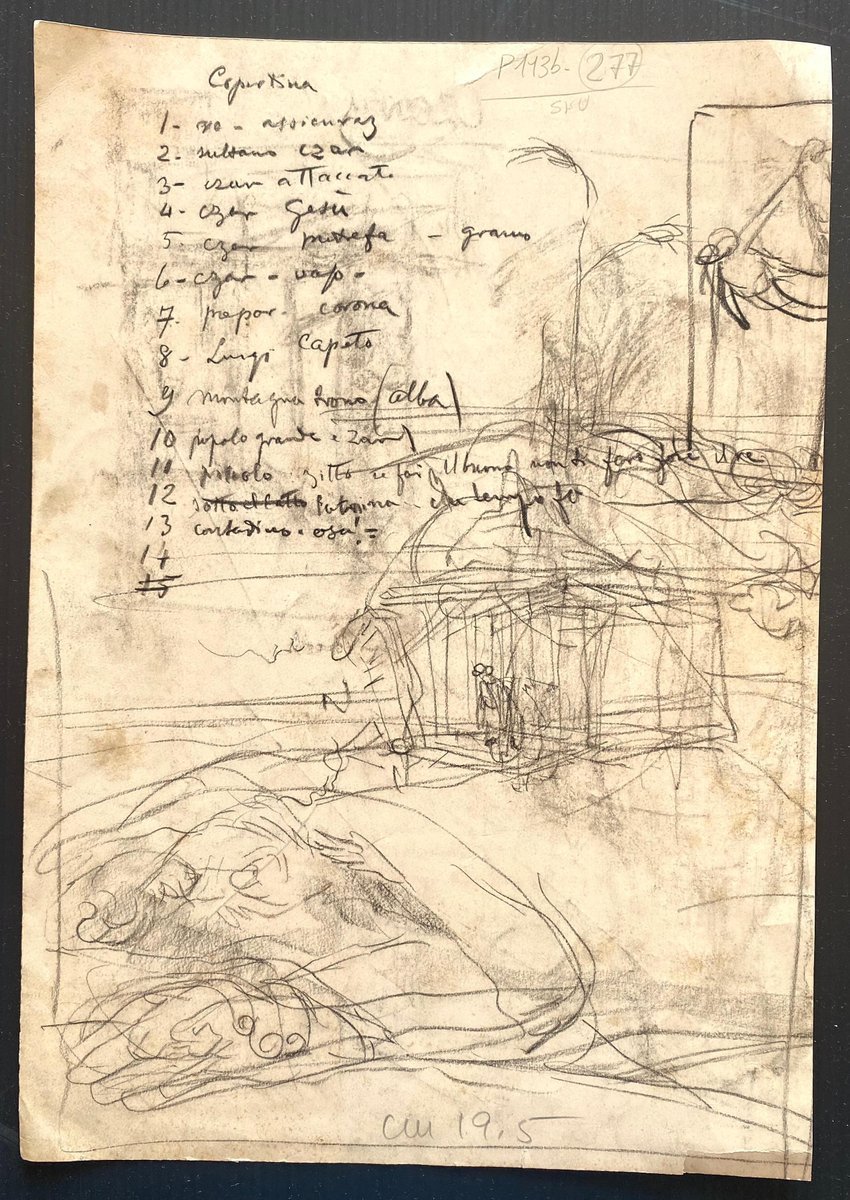 Copertina
P143b. 277
SKU
1- re - assicuraz
2- sultano czar
3- czar attaccato
4- czar Gesù
5- czar - grano
6- czar - vap -
7. papar - corona
8- Luigi Capeto
9 montagna trono (alba)
10 popolo grande e
11 zitto se fai il buono non ti fare il re
12 sotto il letto tempo fa
13 contadino - osa! =
14
15
cm 19.5